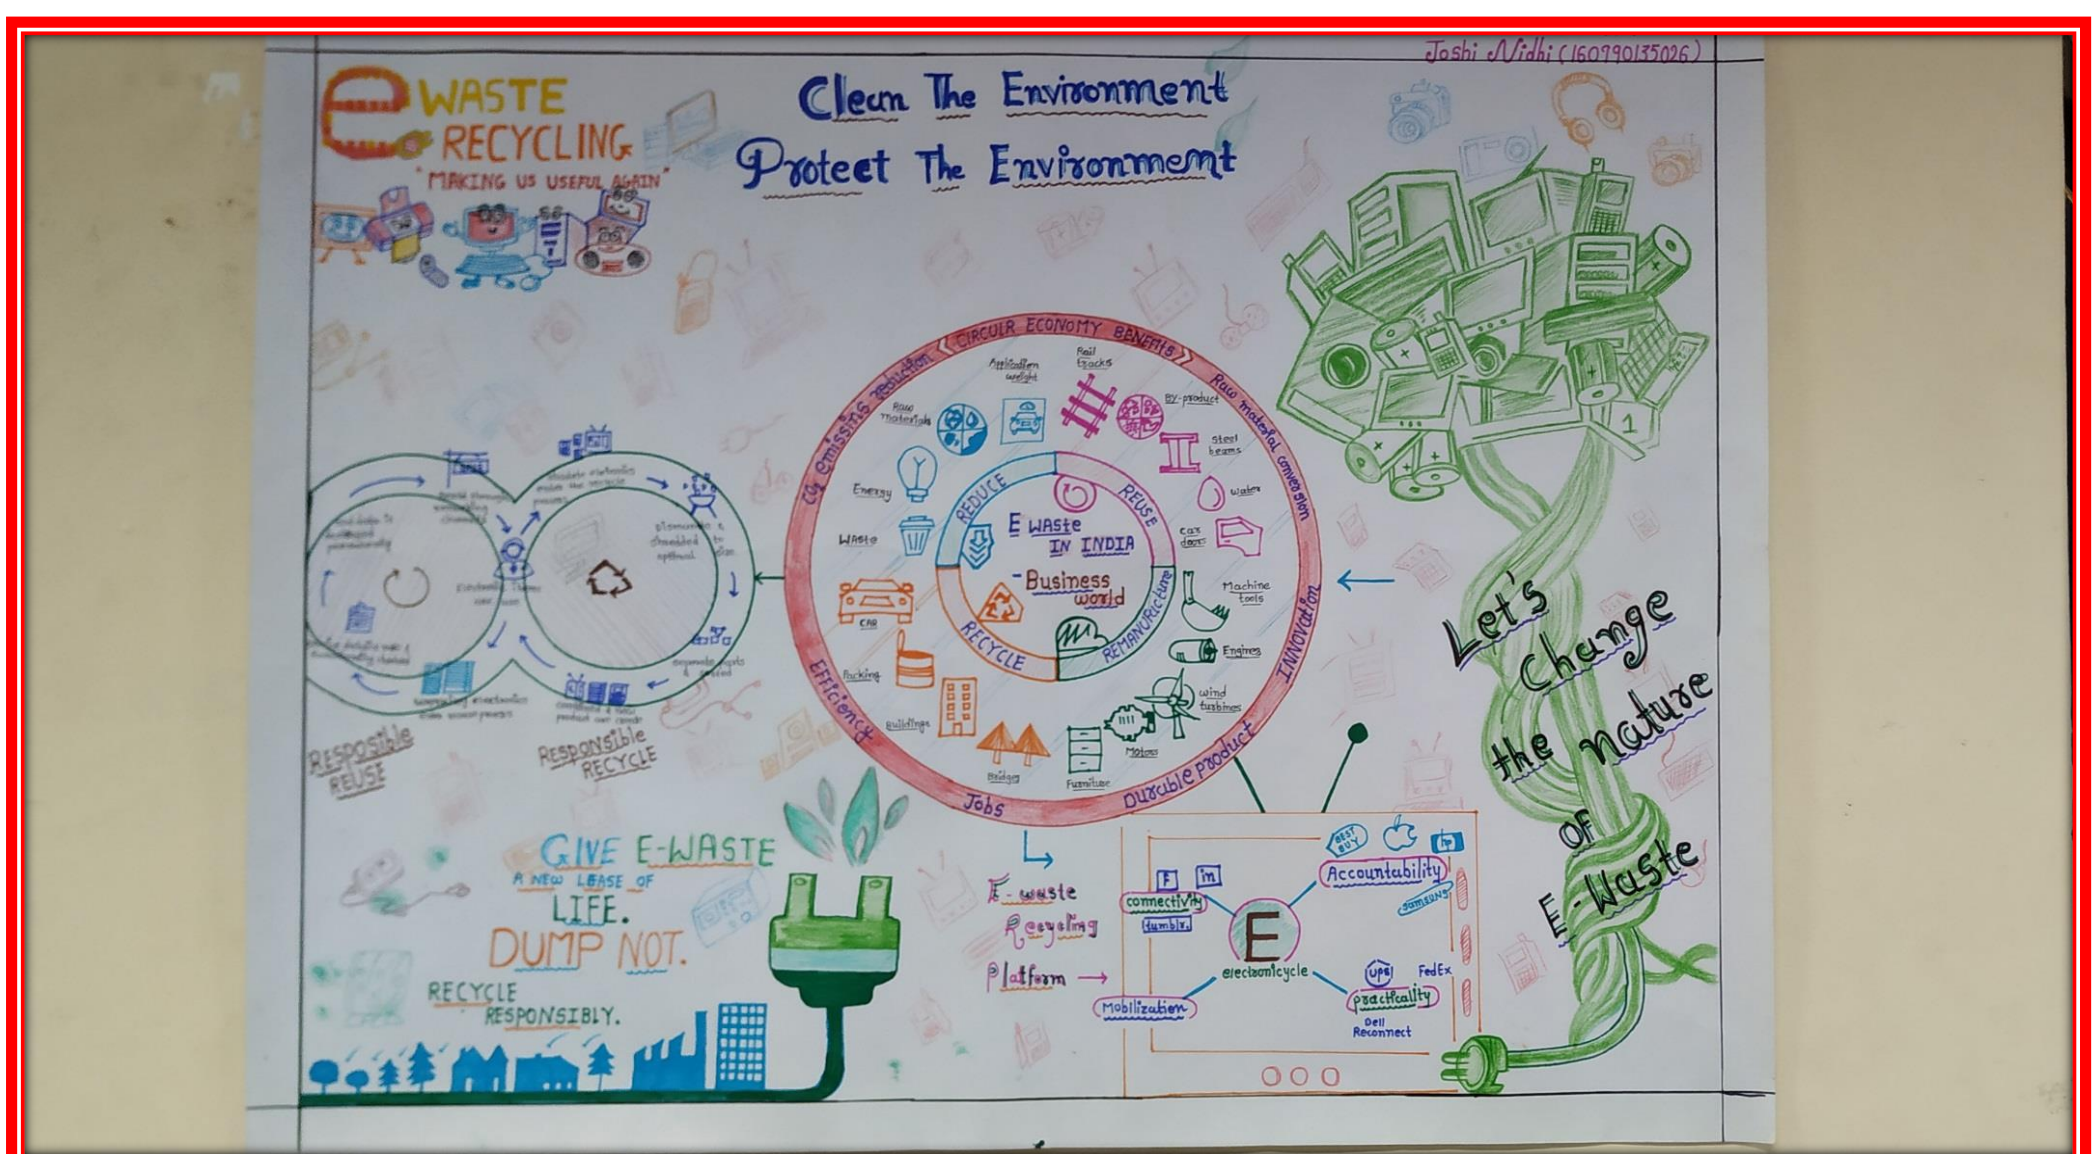 Joshi Nidhi (160990135026)
e WASTE
RECYCLING
"MAKING US USEFUL AGAIN"
Clean The Environment
Protect The Environment
CIRCULR ECONOMY BENEFITS
Raw material conversion
INNOVATION
Durable product
Jobs
Efficiency
CO2 emissing reduction
Application
weight
Rail
tracks
Raw
materials
By-product
steel
beams
Energy
water
Waste
car
doors
CAR
Machine
tools
Packing
Engines
Buildings
wind
turbines
Bridges
Motors
Furniture
REDUCE
REUSE
REMANURICTURE
RECYCLE
E WASte
IN INDIA
- Business
world
RESPOSIBLE
REUSE
RESPONSIBLE
RECYCLE
GIVE E-WASTE
A NEW LEASE OF
LIFE.
DUMP NOT.
RECYCLE
RESPONSIBLY.
E-waste
Recycling
Platform
BEST
BUY
hp
Accountability
SAMSUNG
F in
connectivity
tumblr.
E
electronicycle
Mobilization
ups FedEx
practicality
Dell
Reconnect
1
Let's
change
the nature
OF
E-Waste